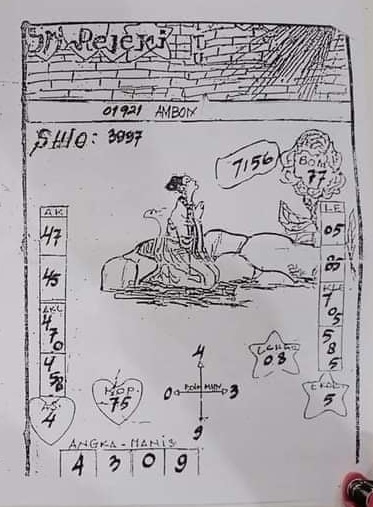 Rejeki
01921 AMBON
SHIO: 3997
7156
BOM
77
AK
47
45
4
7
0
4
5
8
AS
4
LE
05
85
7
0
5
5
8
5
KOP
75
4
0 POLA MAIN 3
9
08
EKOR
5
ANGKA-MANIS
4 3 0 9